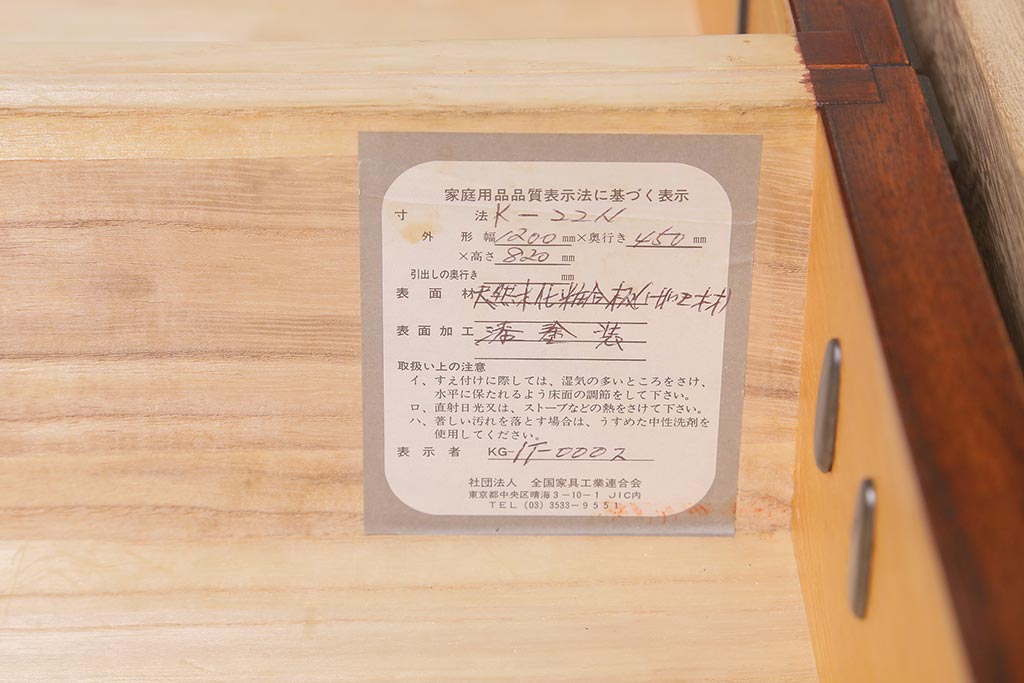 家庭用品品質表示法に基づく表示
寸法 K-22N
外形 幅 1200 mm×奥行き 450 mm
×高さ 820 mm
引出しの奥行き mm
表面材 天然木化粧合板
表面加工 漆塗装
取扱い上の注意
イ、すえ付けに際しては、湿気の多いところをさけ、
水平に保たれるよう床面の調節をして下さい。
ロ、直射日光又は、ストーブなどの熱をさけて下さい。
ハ、著しい汚れを落とす場合は、うすめた中性洗剤を
使用してください。
表示者 KG-IT-0002
社団法人 全国家具工業連合会
東京都中央区晴海3-10-1 JIC内
TEL (03) 3533-9551